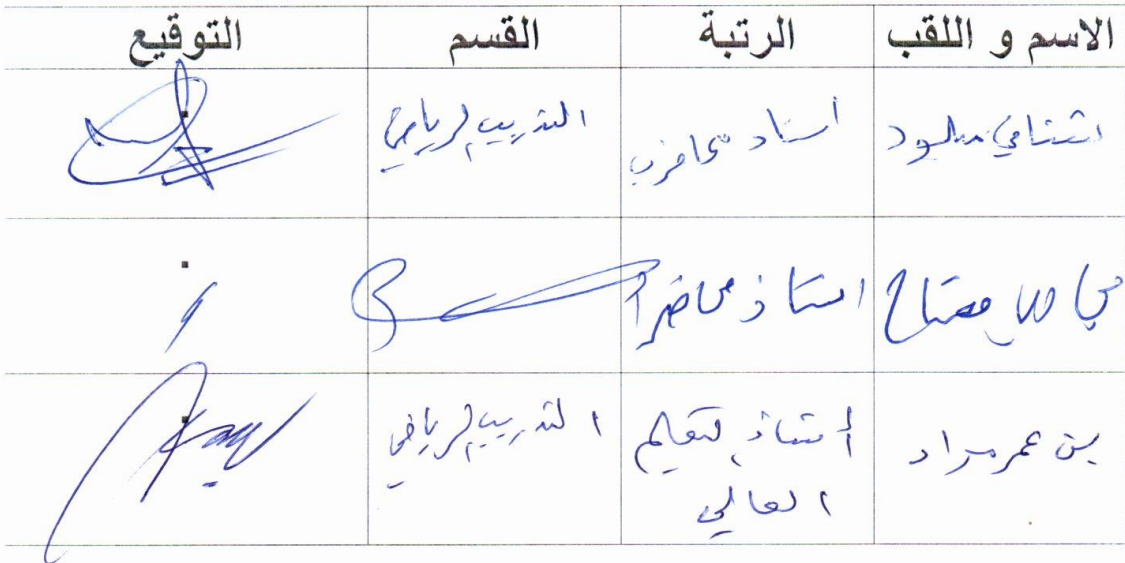 الاسم و اللقب الرتبة القسم التوقيع
شتاني ميلود أستاذ محاضر ب التدريب الرياضي
مفتاح استاذ محاضر أ
بن عمر مراد أستاذ التعليم العالي التدريب الرياضي